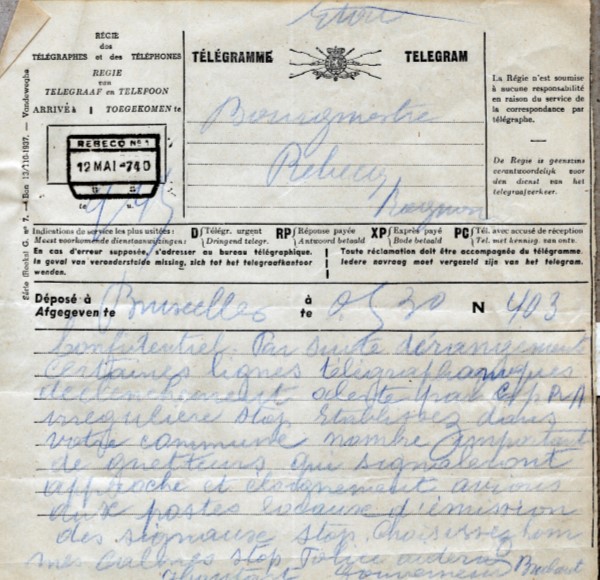 Etat
RÉGIE
des
TÉLÉGRAPHES et des TÉLÉPHONES
REGIE
van
TELEGRAAF en TELEFOON
ARRIVÉ à | TOEGEKOMEN te
REBECQ Nº 1
12 MAI -7 40
TÉLÉGRAMME TELEGRAM
Bourgmestre
Rebecq
Rognon
La Régie n'est soumise
à aucune responsabilité
en raison du service de
la correspondance par
télégraphe.
De Regie is geenszins
verantwoordelijk voor
den dienst van het
telegraafverkeer.
Série (Mod.) G. nº 7. — Bon 12/110-1937. — Vandeweghe
Indications de service les plus usitées:
Meest voorkomende dienstaanwijzingen:
D) Télégr. urgent
Dringend telegr.
RP) Réponse payée
Antwoord betaald
XP) Exprès payé
Bode betaald
PC) Tél. avec accusé de réception
Tel. met kennisg. van ontv.
En cas d'erreur supposée, s'adresser au bureau télégraphique.
In geval van veronderstelde missing, zich tot het telegraafkantoor
wenden.
Toute réclamation doit être accompagnée du télégramme.
Iedere navraag moet vergezeld zijn van het telegram.
Déposé à Bruxelles à 0530 N 403
Afgegeven te te
Confidentiel. Par suite dérangement
certaines lignes télégraphiques
déclenchement alerte par
irrégulière stop établissez dans
votre commune nombre important
de guetteurs qui signaleront
approche et éloignement avions
aux postes locaux d'émission
des signaux stop choisissez hom
mes calmes stop Police aidera
Gouverneur